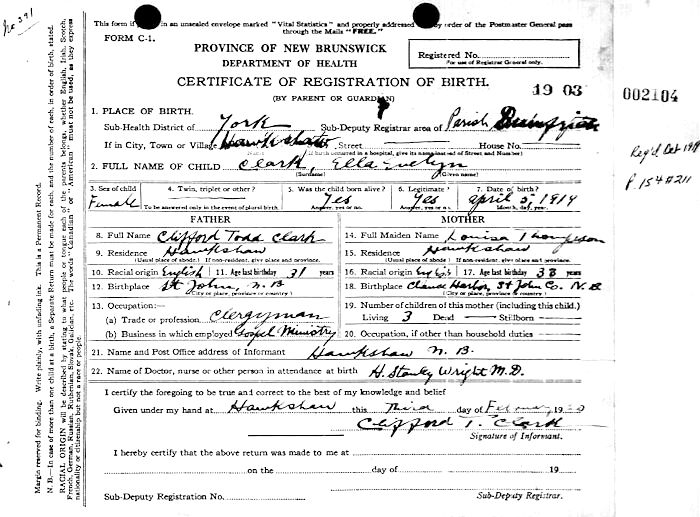 This form if in an unsealed envelope marked "Vital Statistics" and properly addressed by order of the Postmaster General pass
through the Mails "FREE."
FORM C-1.
PROVINCE OF NEW BRUNSWICK
DEPARTMENT OF HEALTH
Registered No.
For use of Registrar General only.
CERTIFICATE OF REGISTRATION OF BIRTH.
(BY PARENT OR GUARDIAN)
19 03
002104
1. PLACE OF BIRTH.
Sub-Health District of York Sub-Deputy Registrar area of Parish
If in City, Town or Village Hawkshaw, Street House No.
If birth occurred in a hospital, give its name instead of Street and Number)
Reg'd Oct 19
P 154 # 211
2. FULL NAME OF CHILD Clark, Ella Evelyn
(Surname) (Given name)
3. Sex of child Female
4. Twin, triplet or other?
To be answered only in the event of plural birth.
5. Was the child born alive? Yes
Answer, yes or no.
6. Legitimate? Yes
Answer yes or no.
7. Date of birth? April 5, 1919
Month, day, year.
FATHER
8. Full Name Clifford Todd Clark
9. Residence Hawkshaw
(Usual place of abode.) If non-resident, give place and province.
10. Racial origin English 11. Age last birthday 31 years
12. Birthplace St John, N.B
(City or place, province or country)
13. Occupation:—
(a) Trade or profession Clergyman
(b) Business in which employed Gospel Ministry
MOTHER
14. Full Maiden Name Louisa Thompson
15. Residence Hawkshaw
(Usual place of abode) If non-resident, give place and province.
16. Racial origin Eng 17. Age last birthday 38 years
18. Birthplace Harbor, St John Co. N.B
(City or place, province or country)
19. Number of children of this mother (including this child.)
Living 3 Dead — Stillborn -
20. Occupation, if other than household duties
21. Name and Post Office address of Informant Hawkshaw N.B.
22. Name of Doctor, nurse or other person in attendance at birth H. Stanley Wright M.D.
I certify the foregoing to be true and correct to the best of my knowledge and belief
Given under my hand at Hawkshaw this Third day of
Clifford T. Clark
Signature of Informant.
I hereby certify that the above return was made to me at
on the day of 19
Sub-Deputy Registration No.
Sub-Deputy Registrar.
Margin reserved for binding. Write plainly, with unfading ink. This is a Permanent Record.
N. B.—In case of more than one child at a birth, a Separate Return must be made for each, and the number of each, in order of birth, stated.
RACIAL ORIGIN will be described by stating to what people or tongue each of the parents belongs, whether English, Irish, Scotch,
French, German, Russian, Ruthenian, Slovak, Galician, etc. The words "Canadian" or "American" must not be used, as they express
nationality or citizenship but not a race or people.